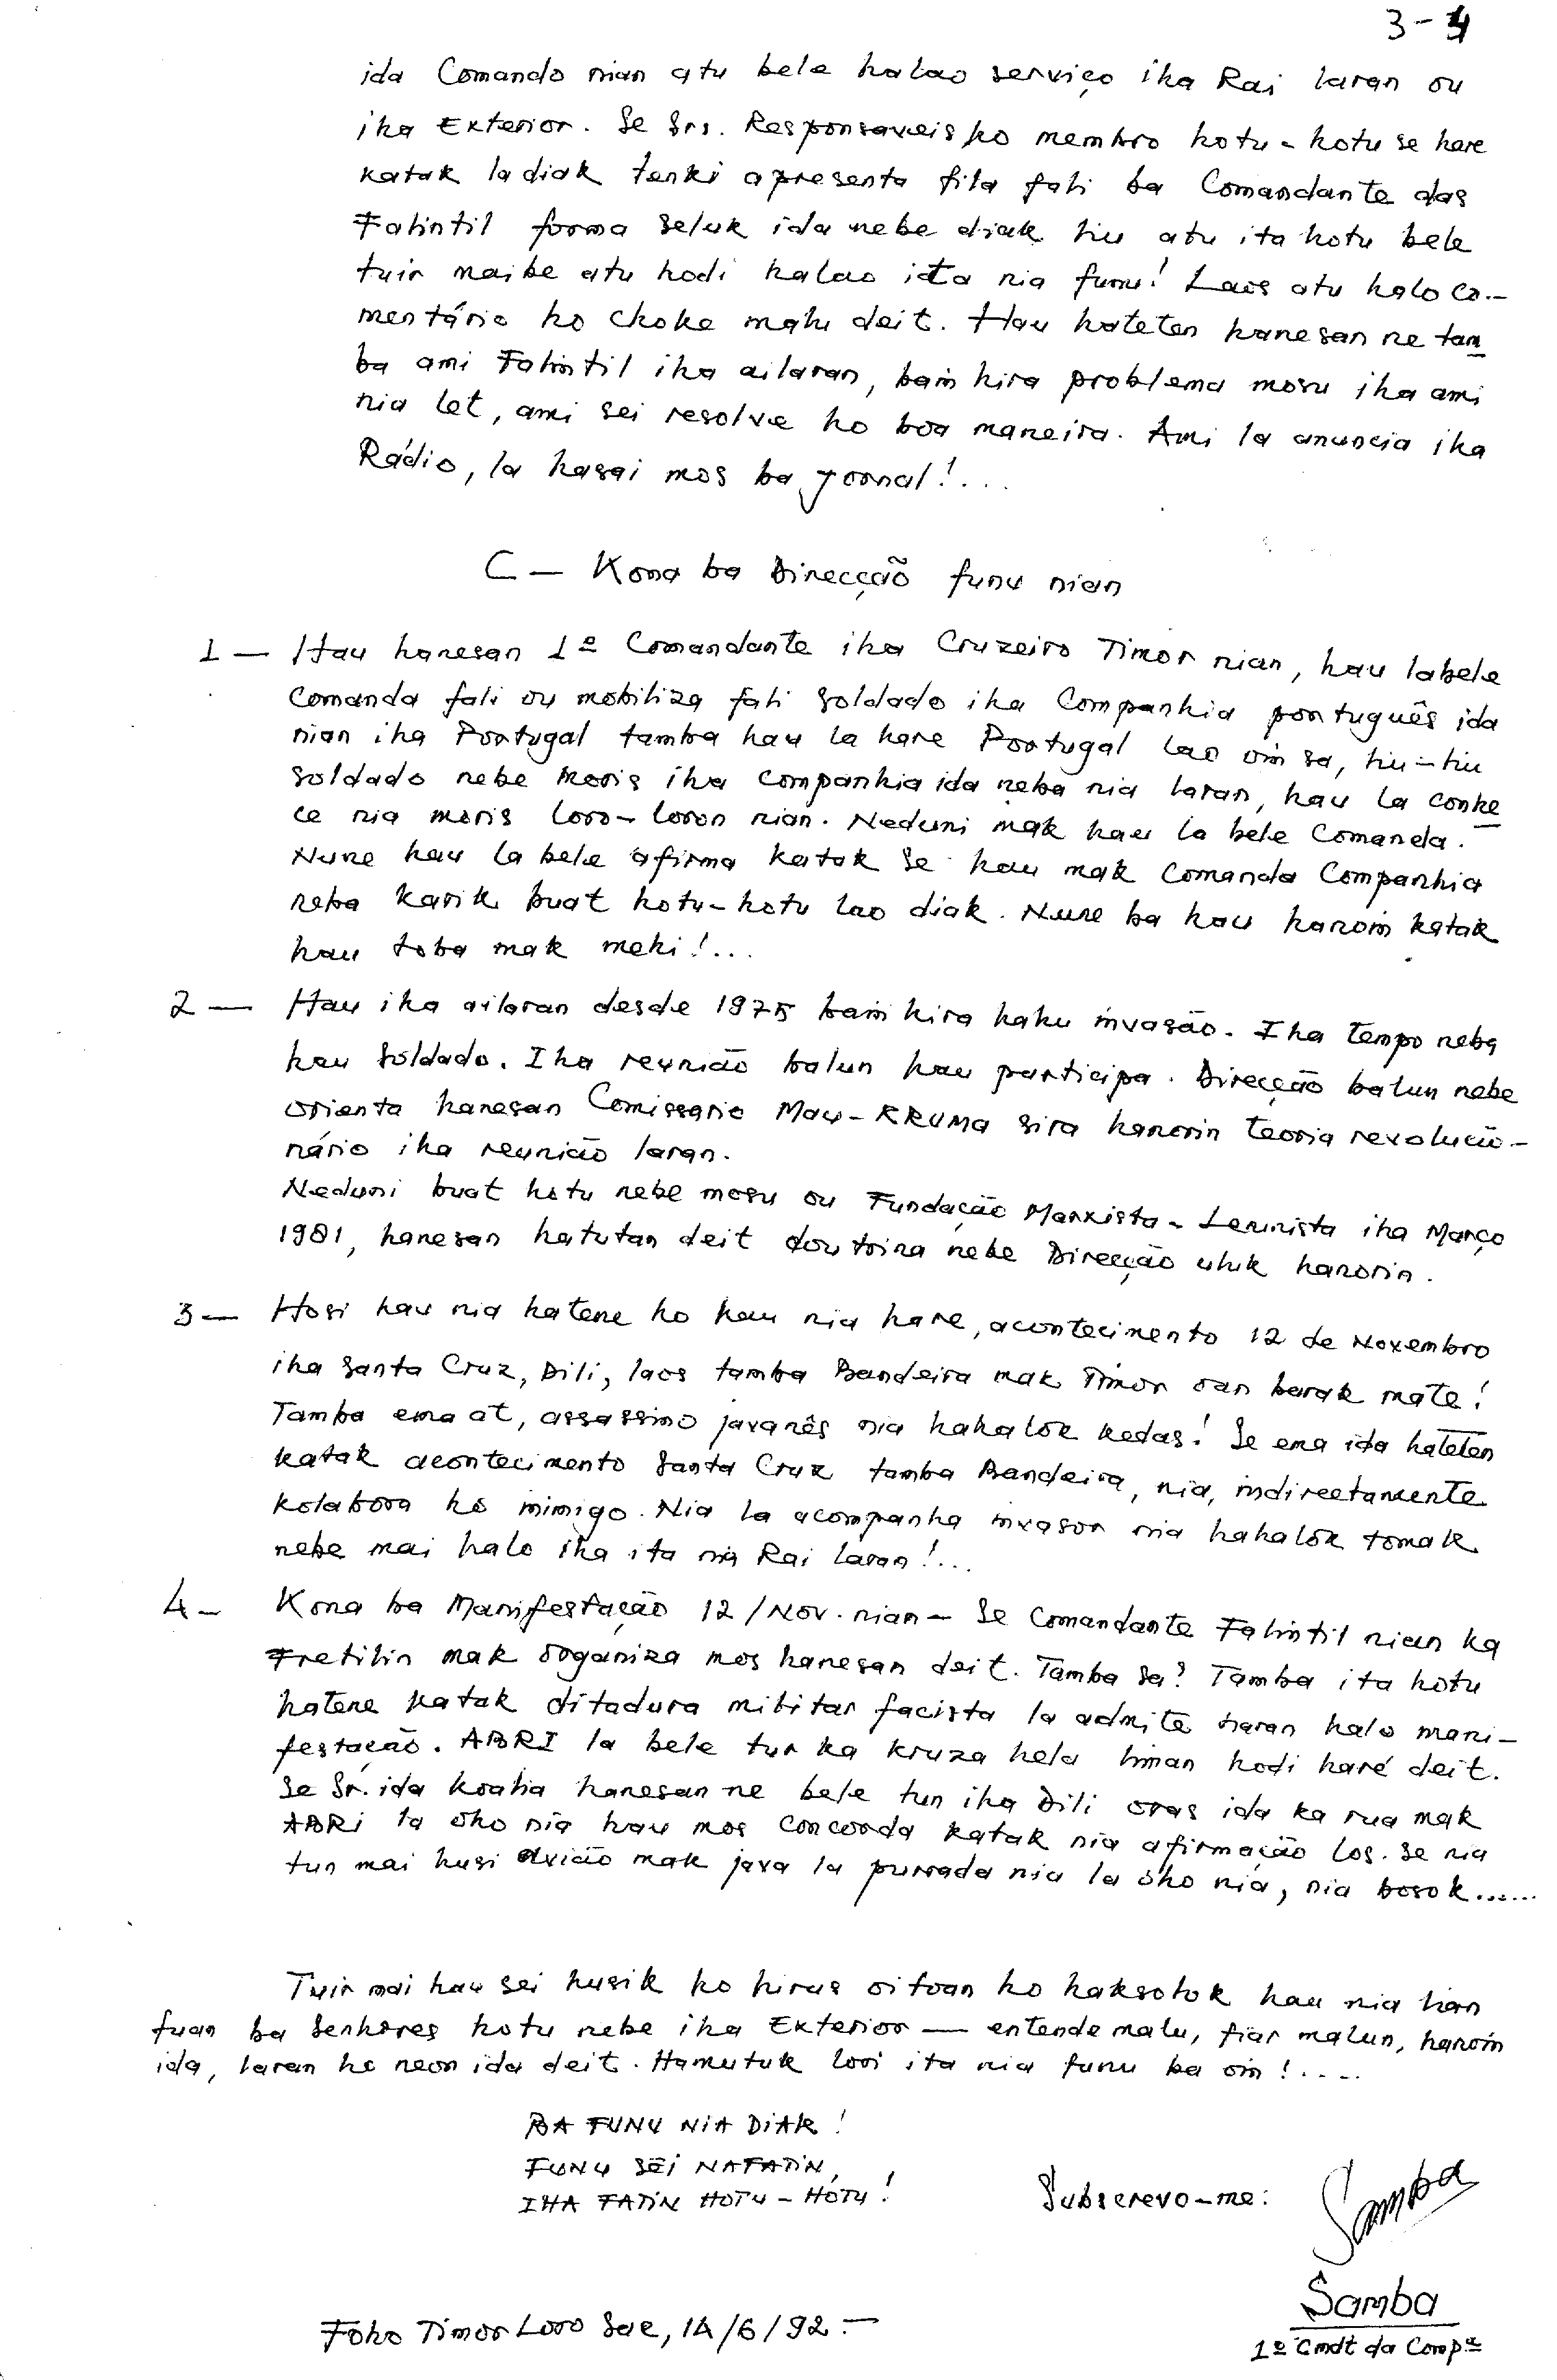 3-4
ida Comando nian atu bele halao serviço iha Rai laran ou
iha Exterior. Se Srs. Responsaveis ho membro hotu-hotu se hare
katak ladiak tenki apresenta fila fali ba Comandante das
Falintil forma seluk ida nebe diak liu atu ita hotu bele
tuir maibe atu hodi halao ita nia funu! Laos atu halo co-
mentário ho choke malu deit. Hau hateten hanesan ne tam
ba ami Falintil iha ailaran, bainhira problema mosu iha ami
nia let, ami sei resolve ho boa maneira. Ami la anuncia iha
Rádio, la hasai mos ba jornal!...
C — Kona ba Direcção funu nian
1 — Hau hanesan 1º Comandante iha Cruzeiro Timor nian, hau labele
Comanda fali ou mobiliza fali soldado iha Companhia português ida
nian iha Portugal tamba hau la hare Portugal lao oin sa, liu-liu
soldado nebe moris iha companhia ida neba nia laran, hau la conhe
ce nia moris loro-loron nian. Neduni mak hau la bele Comanda.
Nune hau la bele afirma katak se hau mak comanda Companhia
neba karik buat hotu-hotu lao diak. Nune ba hau hanoin katak
hau toba mak mehi!...
2 — Hau iha ailaran desde 1975 bainhira hahu invasão. Iha tempo neba
hau soldado. Iha reunião balun hau participa. Direcção balun nebe
orienta hanesan Comissario Mau-KRUMA sira hanorin teoria revolucio-
nário iha reunião laran.
Neduni buat hotu nebe mosu ou Fundação Marxista-Leninista iha Março
1981, hanesan hatutan deit doutrina nebe Direcção uluk hanorin.
3 — Hosi hau nia hatene ho hau nia hare, acontecimento 12 de Novembro
iha Santa Cruz, Dili, laos tamba Bandeira mak Timor oan barak mate!
Tamba ema at, assassino javanês nia hahalok kedas! Se ema ida hateten
katak acontecimento Santa Cruz tamba Bandeira, nia, indirectamente
kolabora ho inimigo. Nia la acompanha invasor nia hahalok tomak
nebe mai halo iha ita nia Rai laran!...
4 - Kona ba Manifestação 12/Nov. nian - Se Comandante Falintil nian ka
Fretilin mak organiza mos hanesan deit. Tamba sa? Tamba ita hotu
hatene katak ditadura militar facista la admite haran halo mani-
festação. ABRI la bele tur ka kruza hela liman hodi haré deit.
Se Sr. ida koalia hanesan ne bele tun iha Dili oras ida ka rua mak
ABRI la oho nia hau mos concorda katak nia afirmação los. Se nia
tun mai husi avião mak java la purrada nia la oho nia, nia bosok......
Tuir mai hau sei husik ho hirus oitoan ho haksolok hau nia lian
fuan ba Senhores hotu nebe iha Exterior — entende malu, fiar malun, hanoin
ida, laran ho neon ida deit. Hamutuk lori ita nia funu ba oin!....
BA FUNU NIA DIAK!
FUNU SEI NAFATIN,
IHA FATIN HOTU-HOTU!
Subscrevo-me:
Samba
Samba
1º Cmdt da Compª
Foho Timor Loro Sae, 14/6/92.-